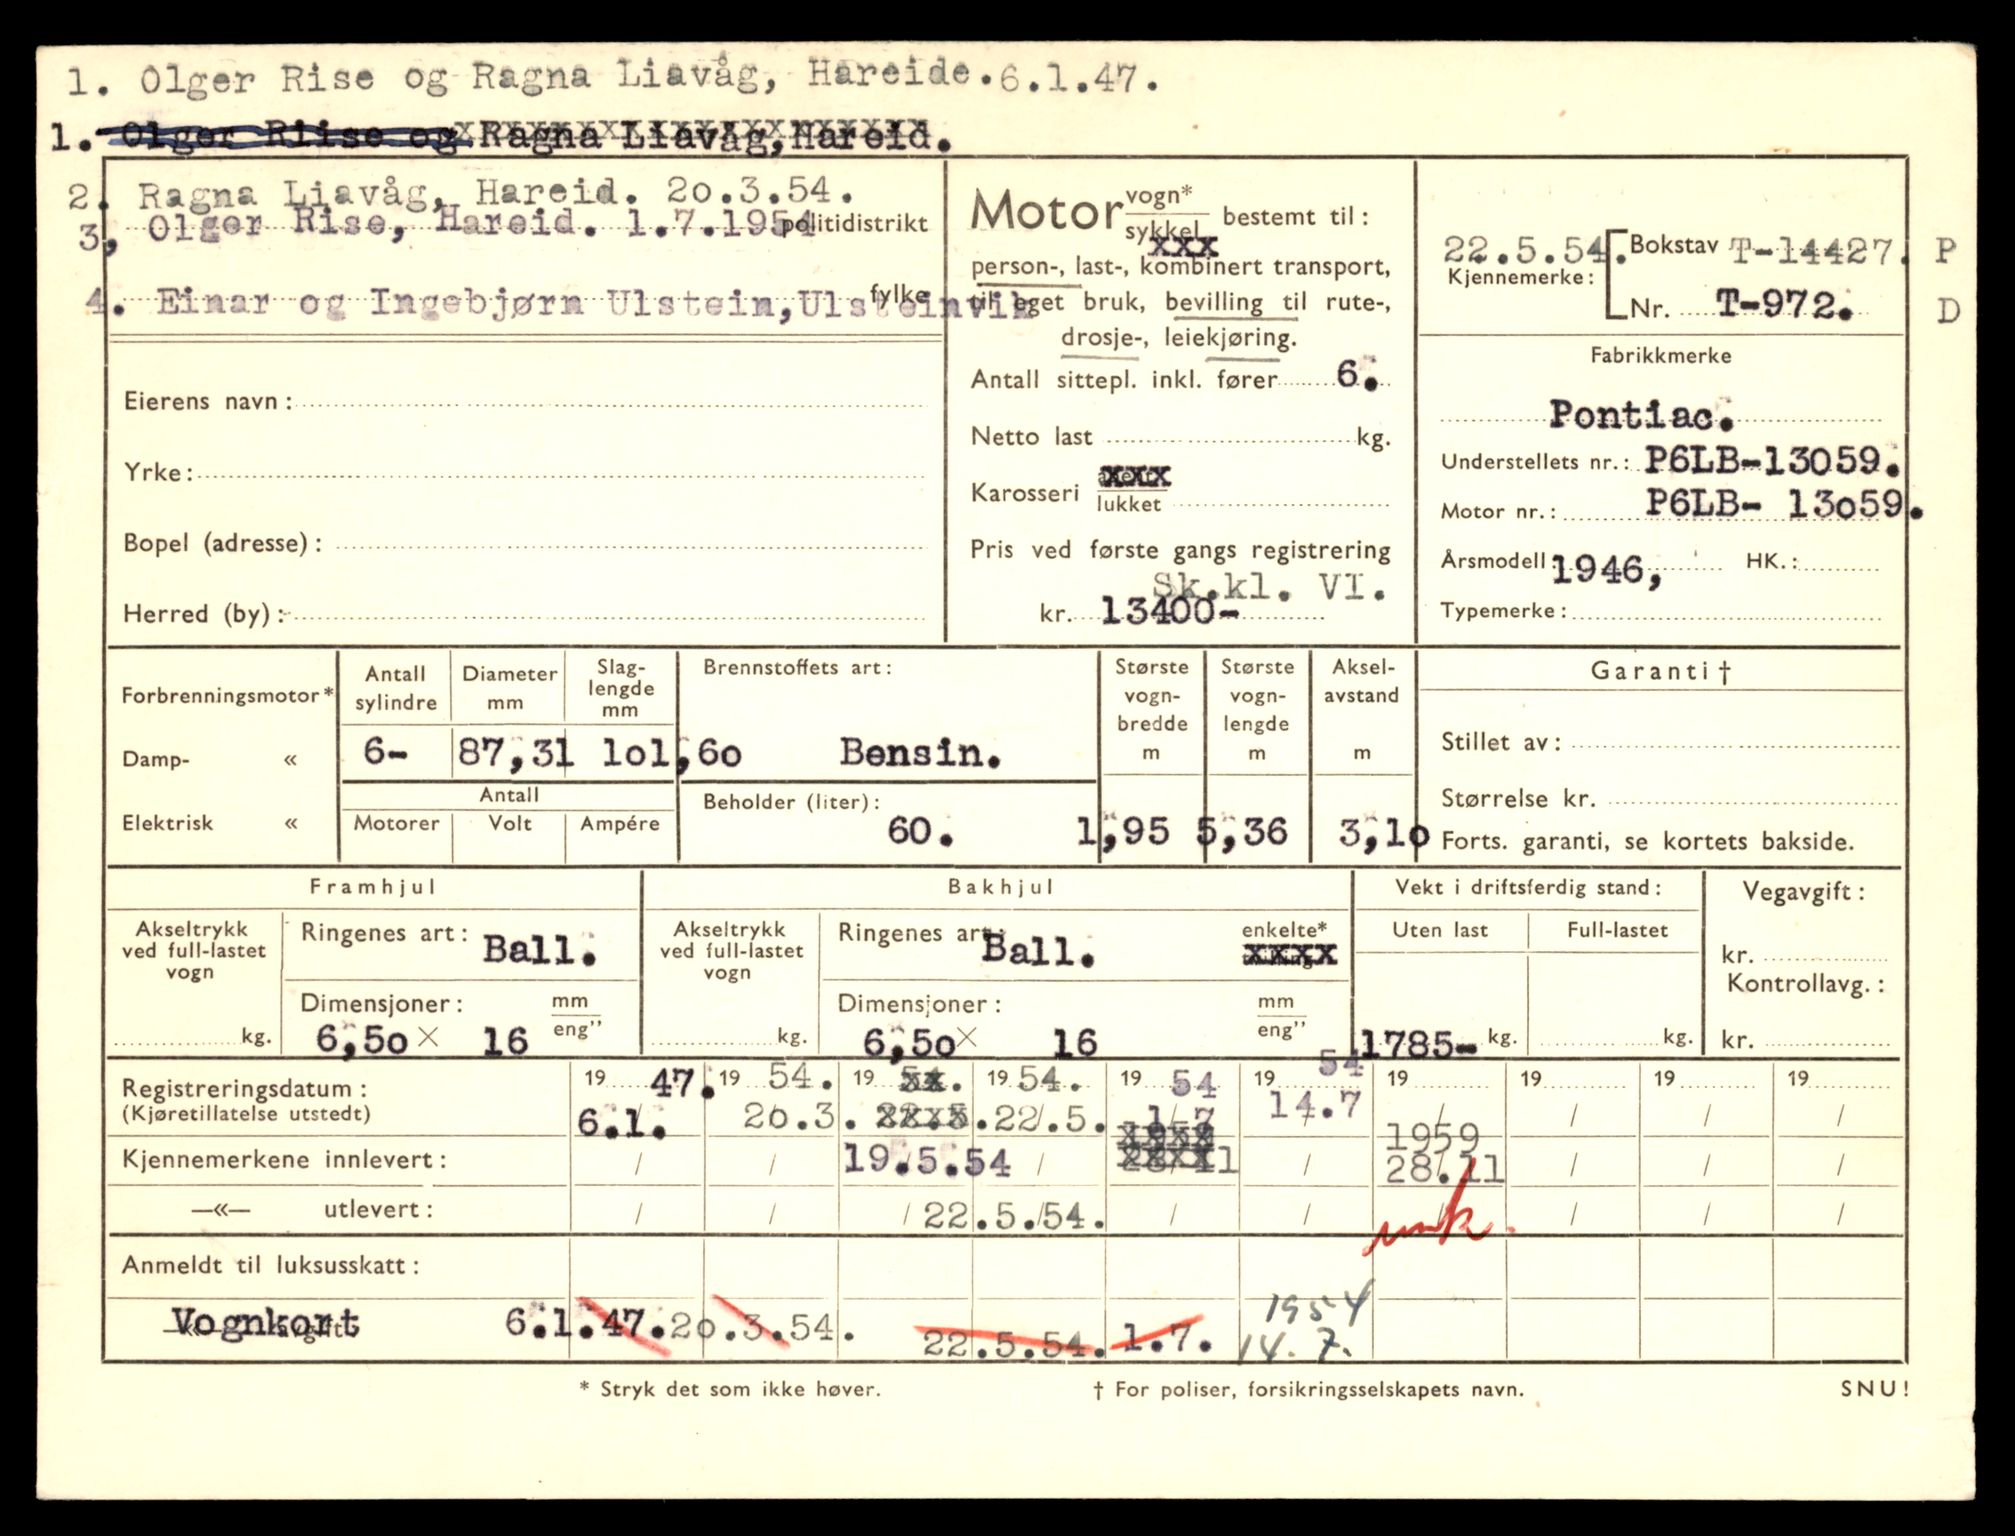 1. Olger Rise og Ragna Liavåg, Hareide. 6.1.47.
1. Olger Riise og Ragna Liavåg, Hareid.
2. Ragna Liavåg, Hareid. 20.3.54.
3, Olger Rise, Hareid. 1.7.1954
politidistrikt
4. Einar og Ingebjørn Ulstein, Ulsteinvik
fylke
Eierens navn:
Yrke:
Bopel (adresse):
Herred (by):
Motor vogn* sykkel bestemt til:
xxx
person-, last-, kombinert transport,
til eget bruk, bevilling til rute-,
drosje-, leiekjøring.
Antall sittepl. inkl. fører 6.
Netto last kg.
Karosseri xxxx
lukket
Pris ved første gangs registrering
Sk.kl. VI.
kr. 13400-
22.5.54. Bokstav T-14427. P
Kjennemerke:
Nr. T-972. D
Fabrikkmerke
Pontiac.
Understellets nr.: P6LB-13059.
Motor nr.: P6LB- 13o59.
Årsmodell: 1946, HK.:
Typemerke:
Forbrenningsmotor*
Damp- «
Elektrisk «
Antall sylindre
Diameter mm
Slag-lengde mm
Brennstoffets art:
6- 87,31 lol,6o Bensin.
Antall
Motorer Volt Ampére
Beholder (liter):
60.
Største vogn-bredde m
Største vogn-lengde m
Aksel-avstand m
1,95 5,36 3,1o
Garanti †
Stillet av:
Størrelse kr.
Forts. garanti, se kortets bakside.
Framhjul
Akseltrykk ved full-lastet vogn
kg.
Ringenes art: Ball.
Dimensjoner: mm
6,5o × 16 eng"
Bakhjul
Akseltrykk ved full-lastet vogn
kg.
Ringenes art: Ball. enkelte*
xxxx
Dimensjoner: mm
6,5o × 16 eng"
Vekt i driftsferdig stand:
Uten last Full-lastet
1785- kg. kg.
Vegavgift:
kr.
Kontrollavg.:
kr.
Registreringsdatum: 19 47. 19 54. 19 xx. 19 54. 19 54 19 54 19 19 19 19
(Kjøretillatelse utstedt) 6.1. 2o.3. xxxx 22.5. 1/7 14.7 / / / /
xxxx 1959
Kjennemerkene innlevert: / / 19.5.54 / 28/11 / 28.11 / / /
—«— utlevert: / / / 22.5.54. / / / / / /
Anmeldt til luksusskatt:
Vognkort 6.1.47. 2o.3.54. 22.5.54. 1.7. 1954 14. 7.
* Stryk det som ikke høver.
† For poliser, forsikringsselskapets navn.
SNU!